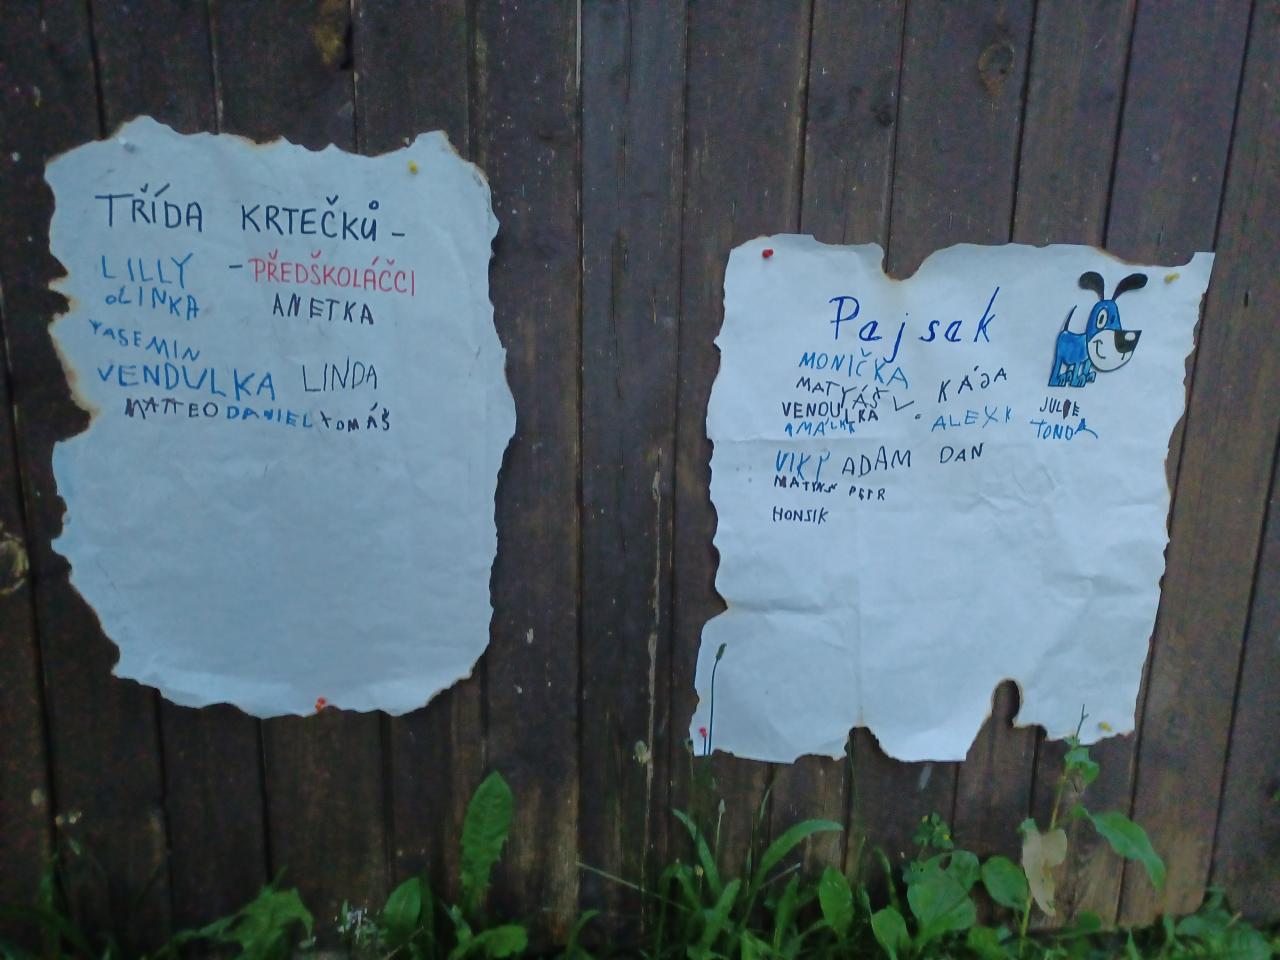 TŘÍDA KRTEČKŮ -
LILLY - PŘEDŠKOLÁČCI
OLINKA ANETKA
YASEMIN
VENDULKA LINDA
MATTEO DANIEL TOMÁŠ
Pejsek
MONIČKA
MATYÁŠ V. KÁJA
VENDULKA ALEX JULIE
AMÁLKA TONDA
VIKY ADAM DAN
MATYÁŠ PETR
HONSIK